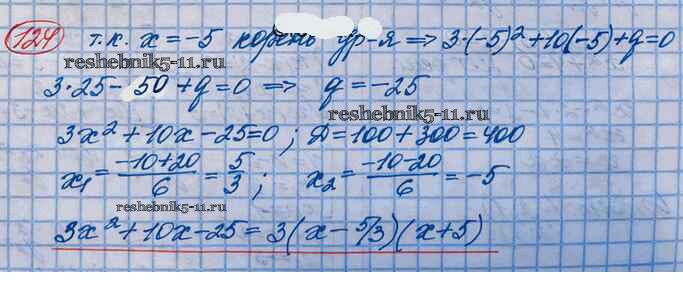 124 т.к. x = -5 корень ур-я ⇒ 3·(-5)²+10(-5)+q=0
reshebnik5-11.ru
3·25-50+q=0 ⇒ q=-25
reshebnik5-11.ru
3x²+10x-25=0; D=100+300=400
x₁=(-10+20)/6=5/3; x₂=(-10-20)/6=-5
reshebnik5-11.ru
3x²+10x-25=3(x-5/3)(x+5)